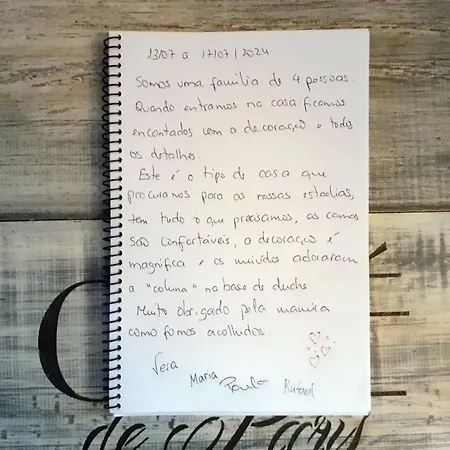 13/07 a 17/07/2024
Somos uma família de 4 pessoas.
Quando entramos na casa ficamos
encantados com a decoração e todos
os detalhes.
Este é o tipo de casa que
procuramos para as nossas estadias,
tem tudo o que precisamos, as camas
são confortáveis, a decoração é
magnifica e os miúdos adoraram
a "coluna" na base de duche
Muito obrigado pela maneira
como fomos acolhidos.
Vera
Maria
Paulo
Rafael
de